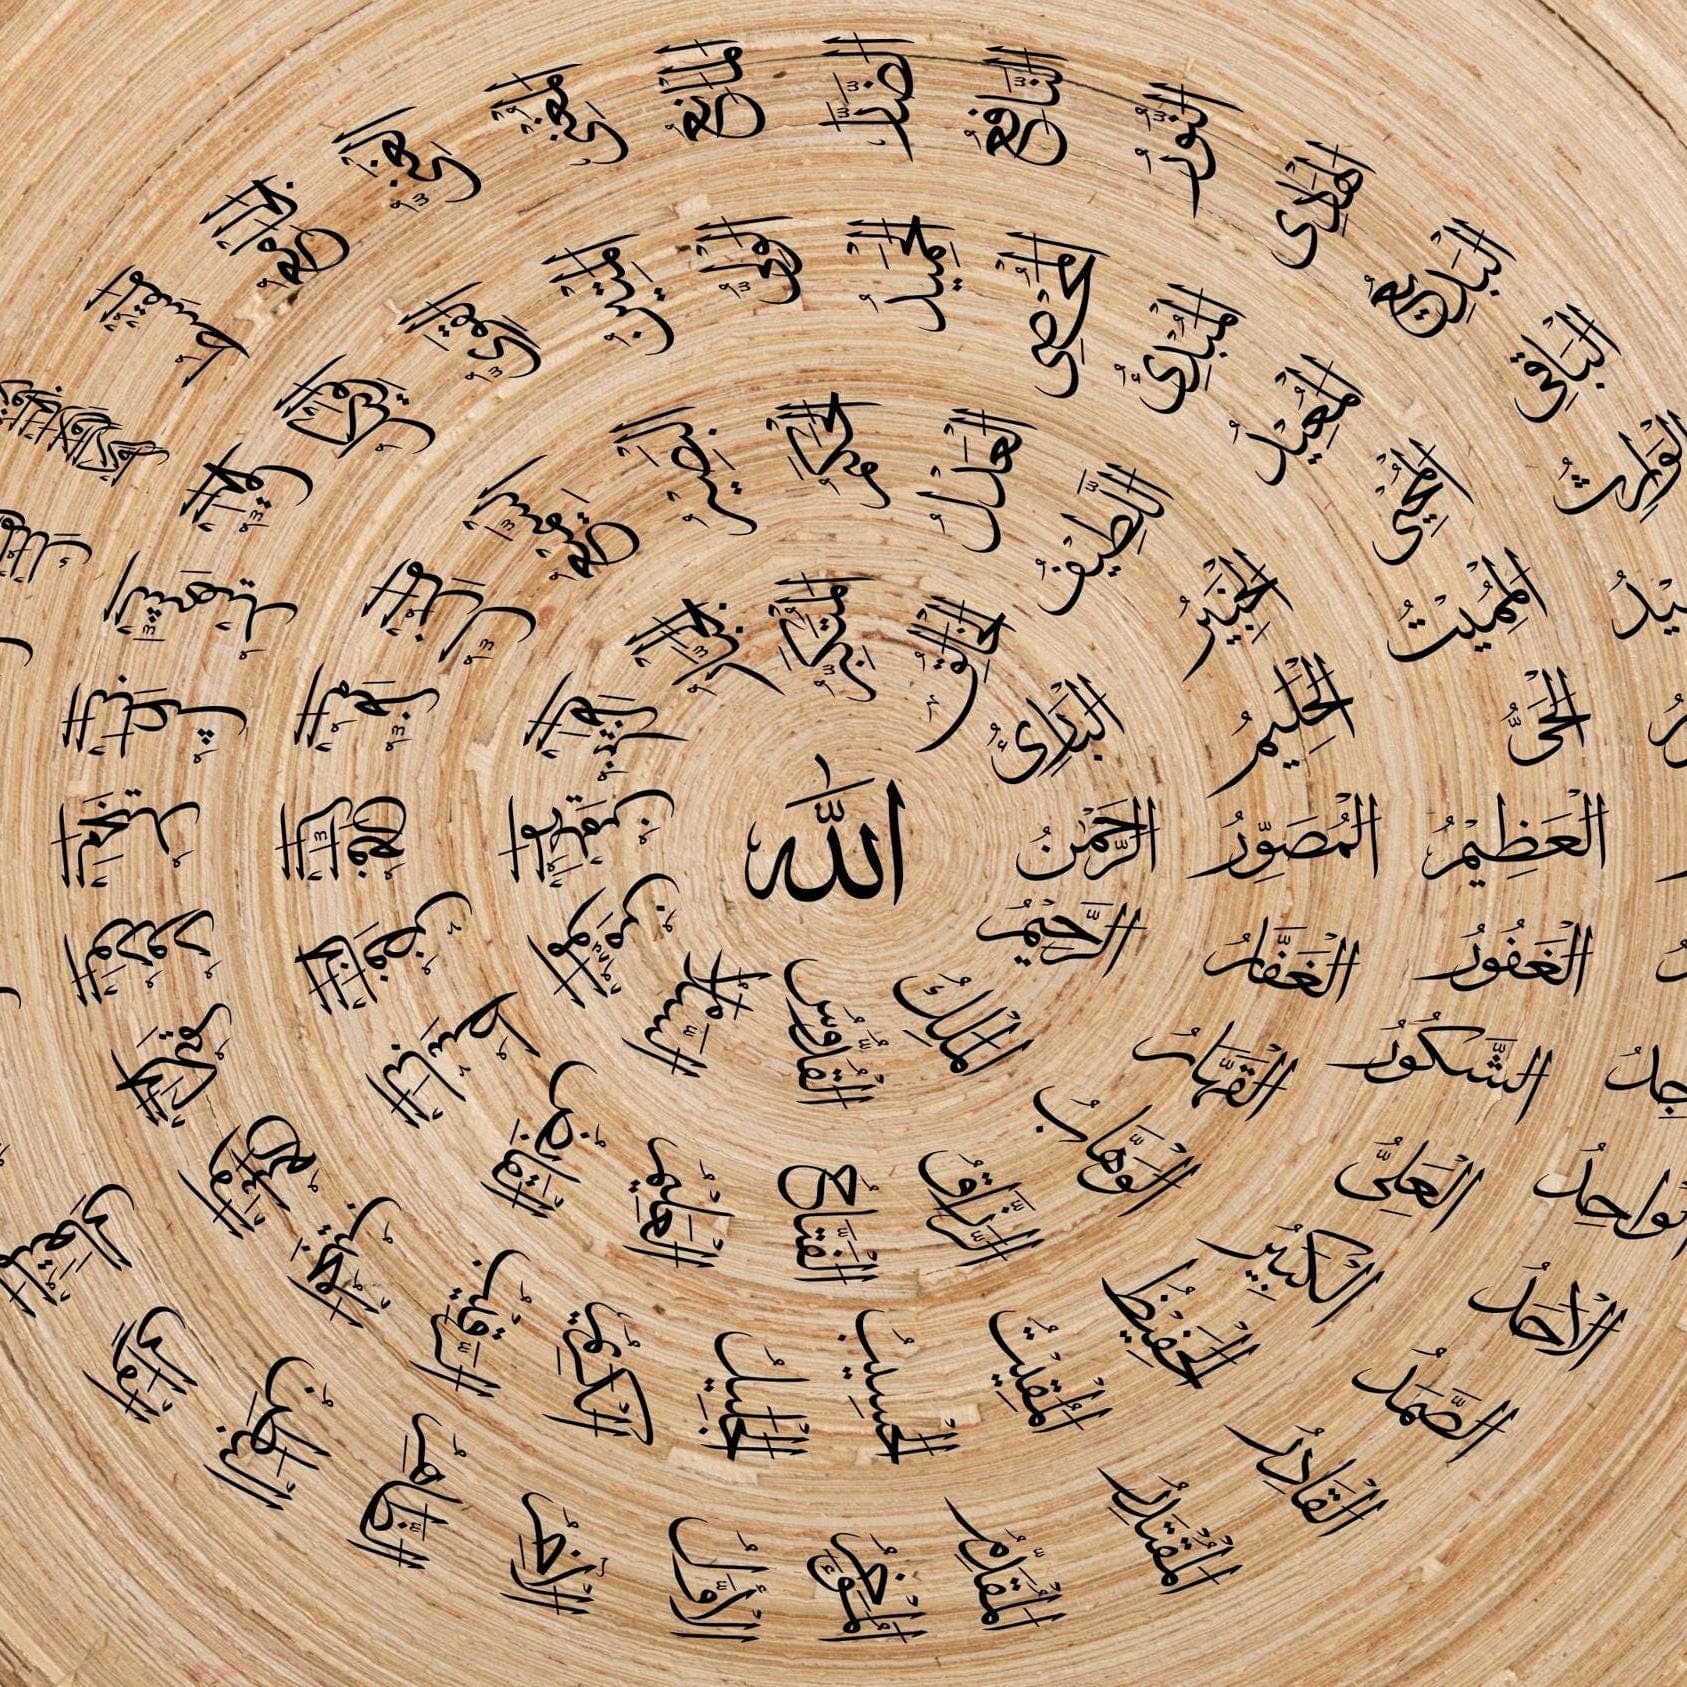 الله
الرَّحْمٰنُ
الرَّحِيْمُ
الْمَلِكُ
الْقُدُّوْسُ
السَّلَامُ
الْمُؤْمِنُ
الْمُهَيْمِنُ
الْعَزِيْزُ
الْجَبَّارُ
الْمُتَكَبِّرُ
الْخَالِقُ
الْبَارِئُ
الْمُصَوِّرُ
الْغَفَّارُ
الْقَهَّارُ
الْوَهَّابُ
الرَّزَّاقُ
الْفَتَّاحُ
الْعَلِيْمُ
الْقَابِضُ
الْبَاسِطُ
الْخَافِضُ
الرَّافِعُ
الْمُعِزُّ
الْمُذِلُّ
السَّمِيْعُ
الْبَصِيْرُ
الْحَكَمُ
الْعَدْلُ
اللَّطِيْفُ
الْخَبِيْرُ
الْحَلِيْمُ
الْعَظِيْمُ
الْغَفُوْرُ
الشَّكُوْرُ
الْعَلِىُّ
الْكَبِيْرُ
الْحَفِيْظُ
الْمُقِيْتُ
الْحَسِيْبُ
الْجَلِيْلُ
الْكَرِيْمُ
الرَّقِيْبُ
الْمُجِيْبُ
الْوَاسِعُ
الْحَكِيْمُ
الْوَدُوْدُ
الْمَجِيْدُ
الْبَاعِثُ
الشَّهِيْدُ
الْحَقُّ
الْوَكِيْلُ
الْقَوِىُّ
الْمَتِيْنُ
الْوَلِىُّ
الْحَمِيْدُ
الْمُحْصِى
الْمُبْدِئُ
الْمُعِيْدُ
الْمُحْيِى
الْمُمِيْتُ
الْحَىُّ
الْوَاحِدُ
الْاَحَدُ
الصَّمَدُ
الْقَادِرُ
الْمُقْتَدِرُ
الْمُقَدِّمُ
الْمُؤَخِّرُ
الْاَوَّلُ
الْاٰخِرُ
الظَّاهِرُ
الْبَاطِنُ
الْوَالِى
الْمُتَعَالِى
الْمُقْسِطُ
الْجَامِعُ
الْغَنِىُّ
الْمُغْنِى
الْمَانِعُ
الضَّارُّ
النَّافِعُ
النُّوْرُ
الْهَادِى
الْبَدِيْعُ
الْبَاقِى
الْوَارِثُ